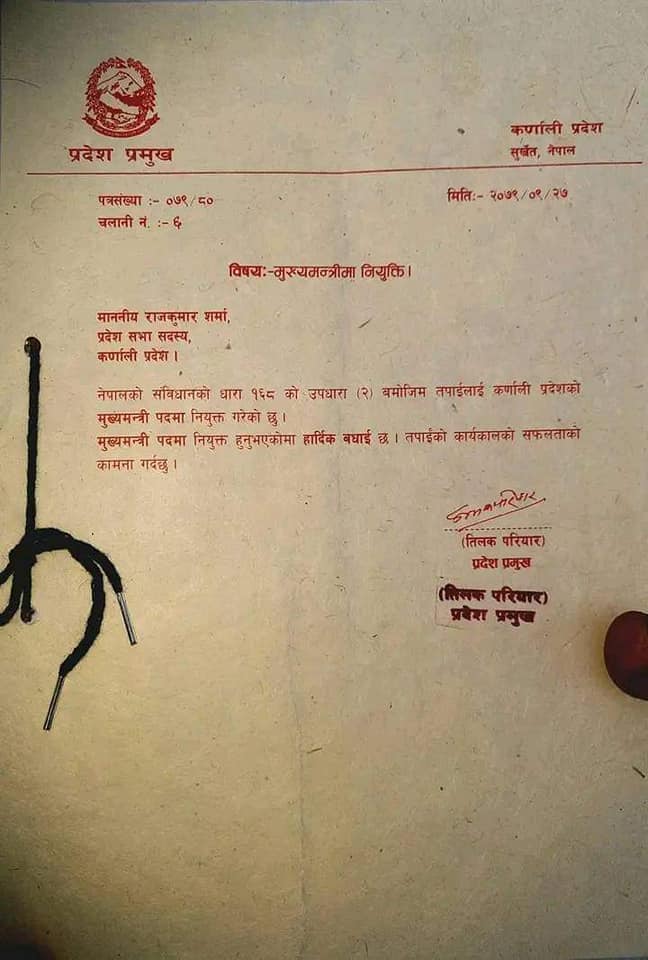 प्रदेश प्रमुख
कर्णाली प्रदेश
सुर्खेत, नेपाल
पत्रसंख्या :- ०७९/८०
मिति:- २०७९/०९/२७
चलानी नं. :- ६
विषय:-मुख्यमन्त्रीमा नियुक्ति।
माननीय राजकुमार शर्मा,
प्रदेश सभा सदस्य,
कर्णाली प्रदेश।
नेपालको संविधानको धारा १६८ को उपधारा (२) बमोजिम तपाईलाई कर्णाली प्रदेशको
मुख्यमन्त्री पदमा नियुक्त गरेको छु।
मुख्यमन्त्री पदमा नियुक्त हुनुभएकोमा हार्दिक बधाई छ। तपाईको कार्यकालको सफलताको
कामना गर्दछु।
(तिलक परियार)
प्रदेश प्रमुख
(तिलक परियार)
प्रदेश प्रमुख